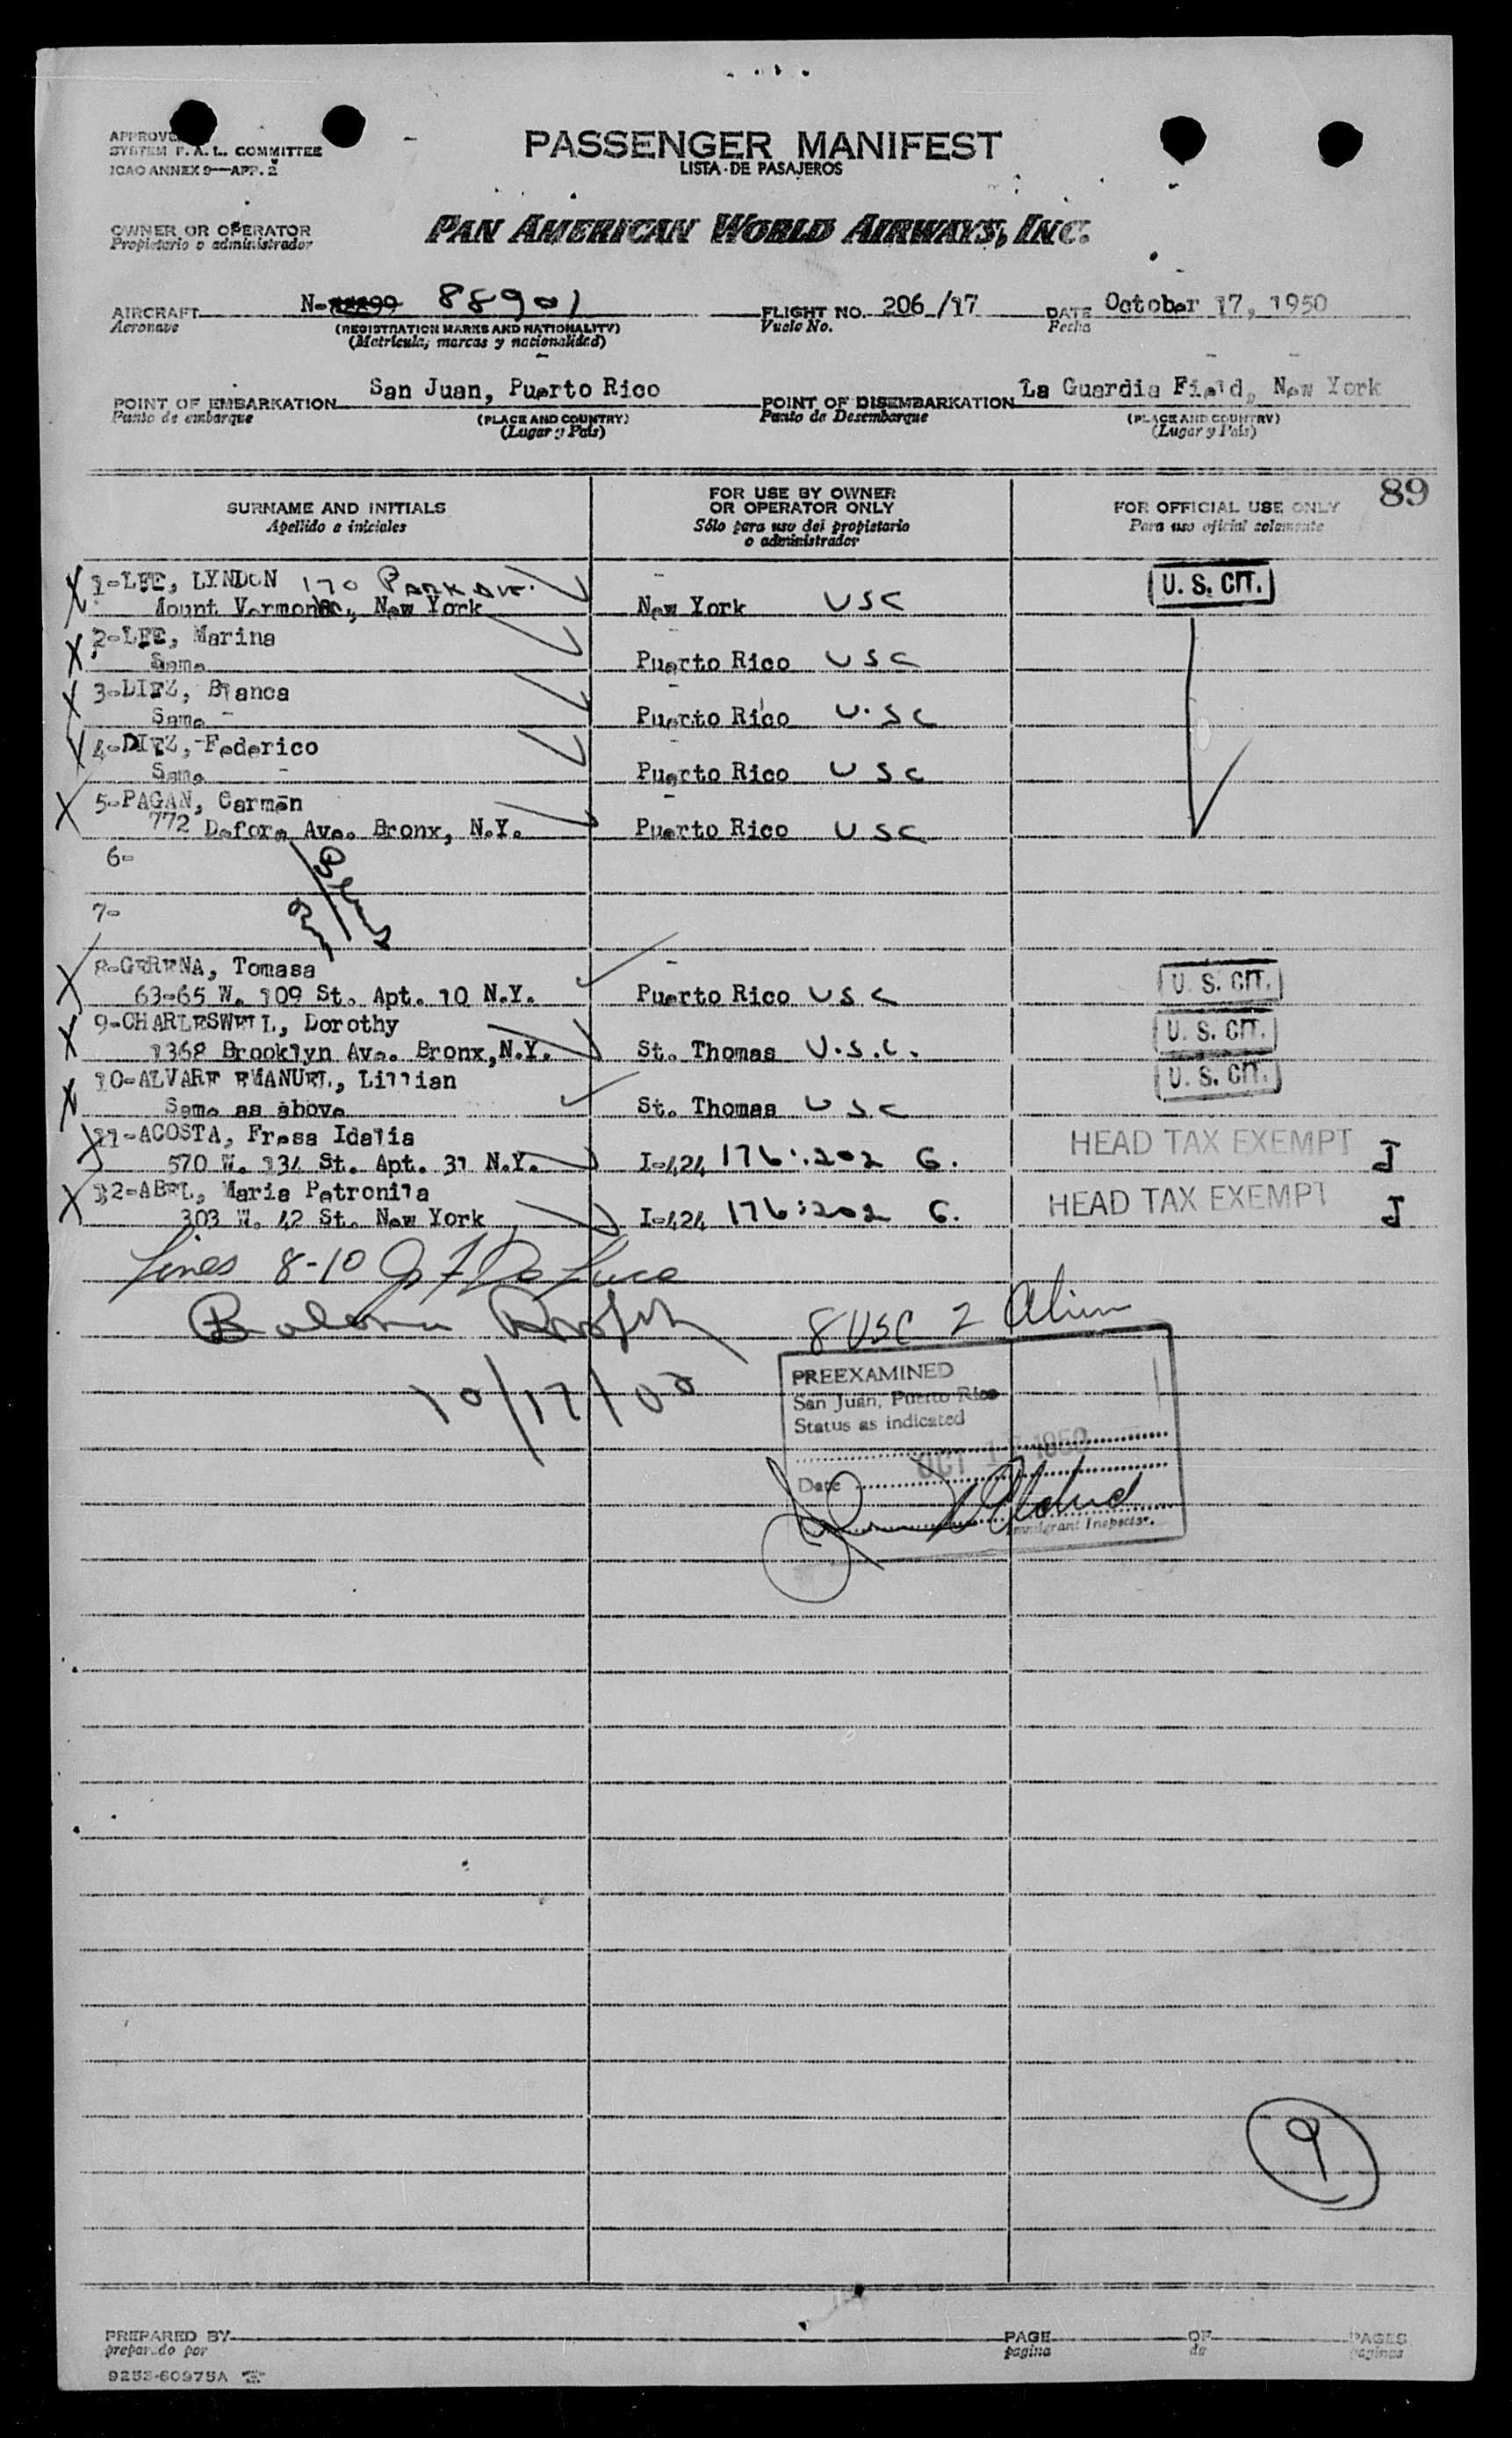 APPROVED
SYSTEM F. A. L. COMMITTEE
ICAO ANNEX 9—APP. 2
PASSENGER MANIFEST
LISTA DE PASAJEROS
OWNER OR OPERATOR
Propietario o administrador
PAN AMERICAN WORLD AIRWAYS, INC.
AIRCRAFT N- 88901 FLIGHT NO. 206/17 DATE October 17, 1950
Aeronave (REGISTRATION MARKS AND NATIONALITY) Vuelo No. Fecha
(Matricula, marcas y nacionalidad)
POINT OF EMBARKATION San Juan, Puerto Rico POINT OF DISEMBARKATION La Guardia Field, New York
Punto de embarque (PLACE AND COUNTRY) Punto de Desembarque (PLACE AND COUNTRY)
(Lugar y Pais) (Lugar y Pais)
89
SURNAME AND INITIALS FOR USE BY OWNER OR OPERATOR ONLY FOR OFFICIAL USE ONLY
Apellido e iniciales Sólo para uso del propietario o administrador Para uso oficial solamente
1-LEE, LYNDON 170 PARK AVE.
Mount Vermon, New York New York USC U. S. CIT.
2-LEE, Marina
Same Puerto Rico USC
3-DIEZ, Blanca
Same Puerto Rico U.SC
4-DIEZ, Federico
Same Puerto Rico USC
5-PAGAN, Carmen
772 Defore Ave. Bronx, N.Y. Puerto Rico USC
6-
7-
8-GERENA, Tomasa
63-65 W. 109 St. Apt. 10 N.Y. Puerto Rico USC U. S. CIT.
9-CHARLESWELL, Dorothy
1368 Brooklyn Ave. Bronx, N.Y. St. Thomas U.S.C. U. S. CIT.
10-ALVARE EMANUEL, Lillian
Same as above St. Thomas USC U. S. CIT.
11-ACOSTA, Fresa Idalia
570 W. 134 St. Apt. 31 N.Y. I-424 176:.202 G. HEAD TAX EXEMPT J
12-ABEL, Maria Petronila
303 W. 42 St. New York I-424 176:202 G. HEAD TAX EXEMPT J
Lines 8-10
8 USC 2 Alien
10/17/
PREEXAMINED
San Juan, Puerto Rico
Status as indicated
Date OCT 17 1950
Immigrant Inspector.
9
PREPARED BY PAGE OF PAGES
preparado por pagina de paginas
9253-60975A